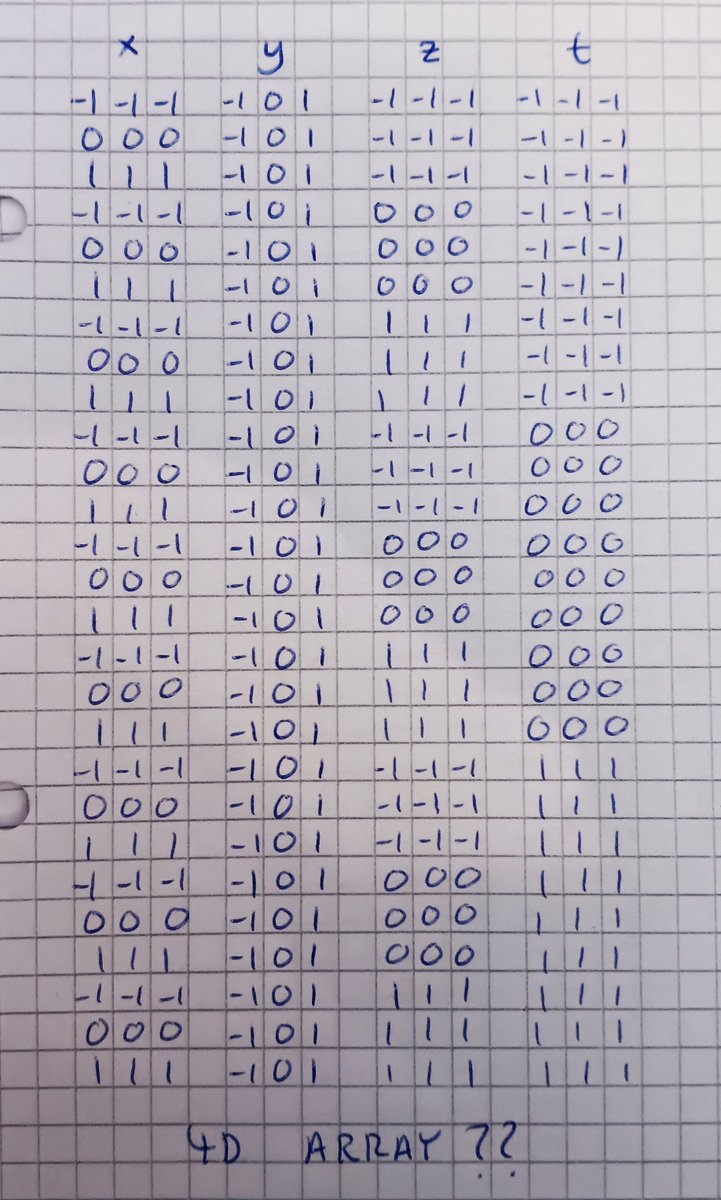 x y z t
-1 -1 -1 -1 0 1 -1 -1 -1 -1 -1 -1
0 0 0 -1 0 1 -1 -1 -1 -1 -1 -1
1 1 1 -1 0 1 -1 -1 -1 -1 -1 -1
-1 -1 -1 -1 0 1 0 0 0 -1 -1 -1
0 0 0 -1 0 1 0 0 0 -1 -1 -1
1 1 1 -1 0 1 0 0 0 -1 -1 -1
-1 -1 -1 -1 0 1 1 1 1 -1 -1 -1
0 0 0 -1 0 1 1 1 1 -1 -1 -1
1 1 1 -1 0 1 1 1 1 -1 -1 -1
-1 -1 -1 -1 0 1 -1 -1 -1 0 0 0
0 0 0 -1 0 1 -1 -1 -1 0 0 0
1 1 1 -1 0 1 -1 -1 -1 0 0 0
-1 -1 -1 -1 0 1 0 0 0 0 0 0
0 0 0 -1 0 1 0 0 0 0 0 0
1 1 1 -1 0 1 0 0 0 0 0 0
-1 -1 -1 -1 0 1 1 1 1 0 0 0
0 0 0 -1 0 1 1 1 1 0 0 0
1 1 1 -1 0 1 1 1 1 0 0 0
-1 -1 -1 -1 0 1 -1 -1 -1 1 1 1
0 0 0 -1 0 1 -1 -1 -1 1 1 1
1 1 1 -1 0 1 -1 -1 -1 1 1 1
-1 -1 -1 -1 0 1 0 0 0 1 1 1
0 0 0 -1 0 1 0 0 0 1 1 1
1 1 1 -1 0 1 0 0 0 1 1 1
-1 -1 -1 -1 0 1 1 1 1 1 1 1
0 0 0 -1 0 1 1 1 1 1 1 1
1 1 1 -1 0 1 1 1 1 1 1 1
4D ARRAY ??